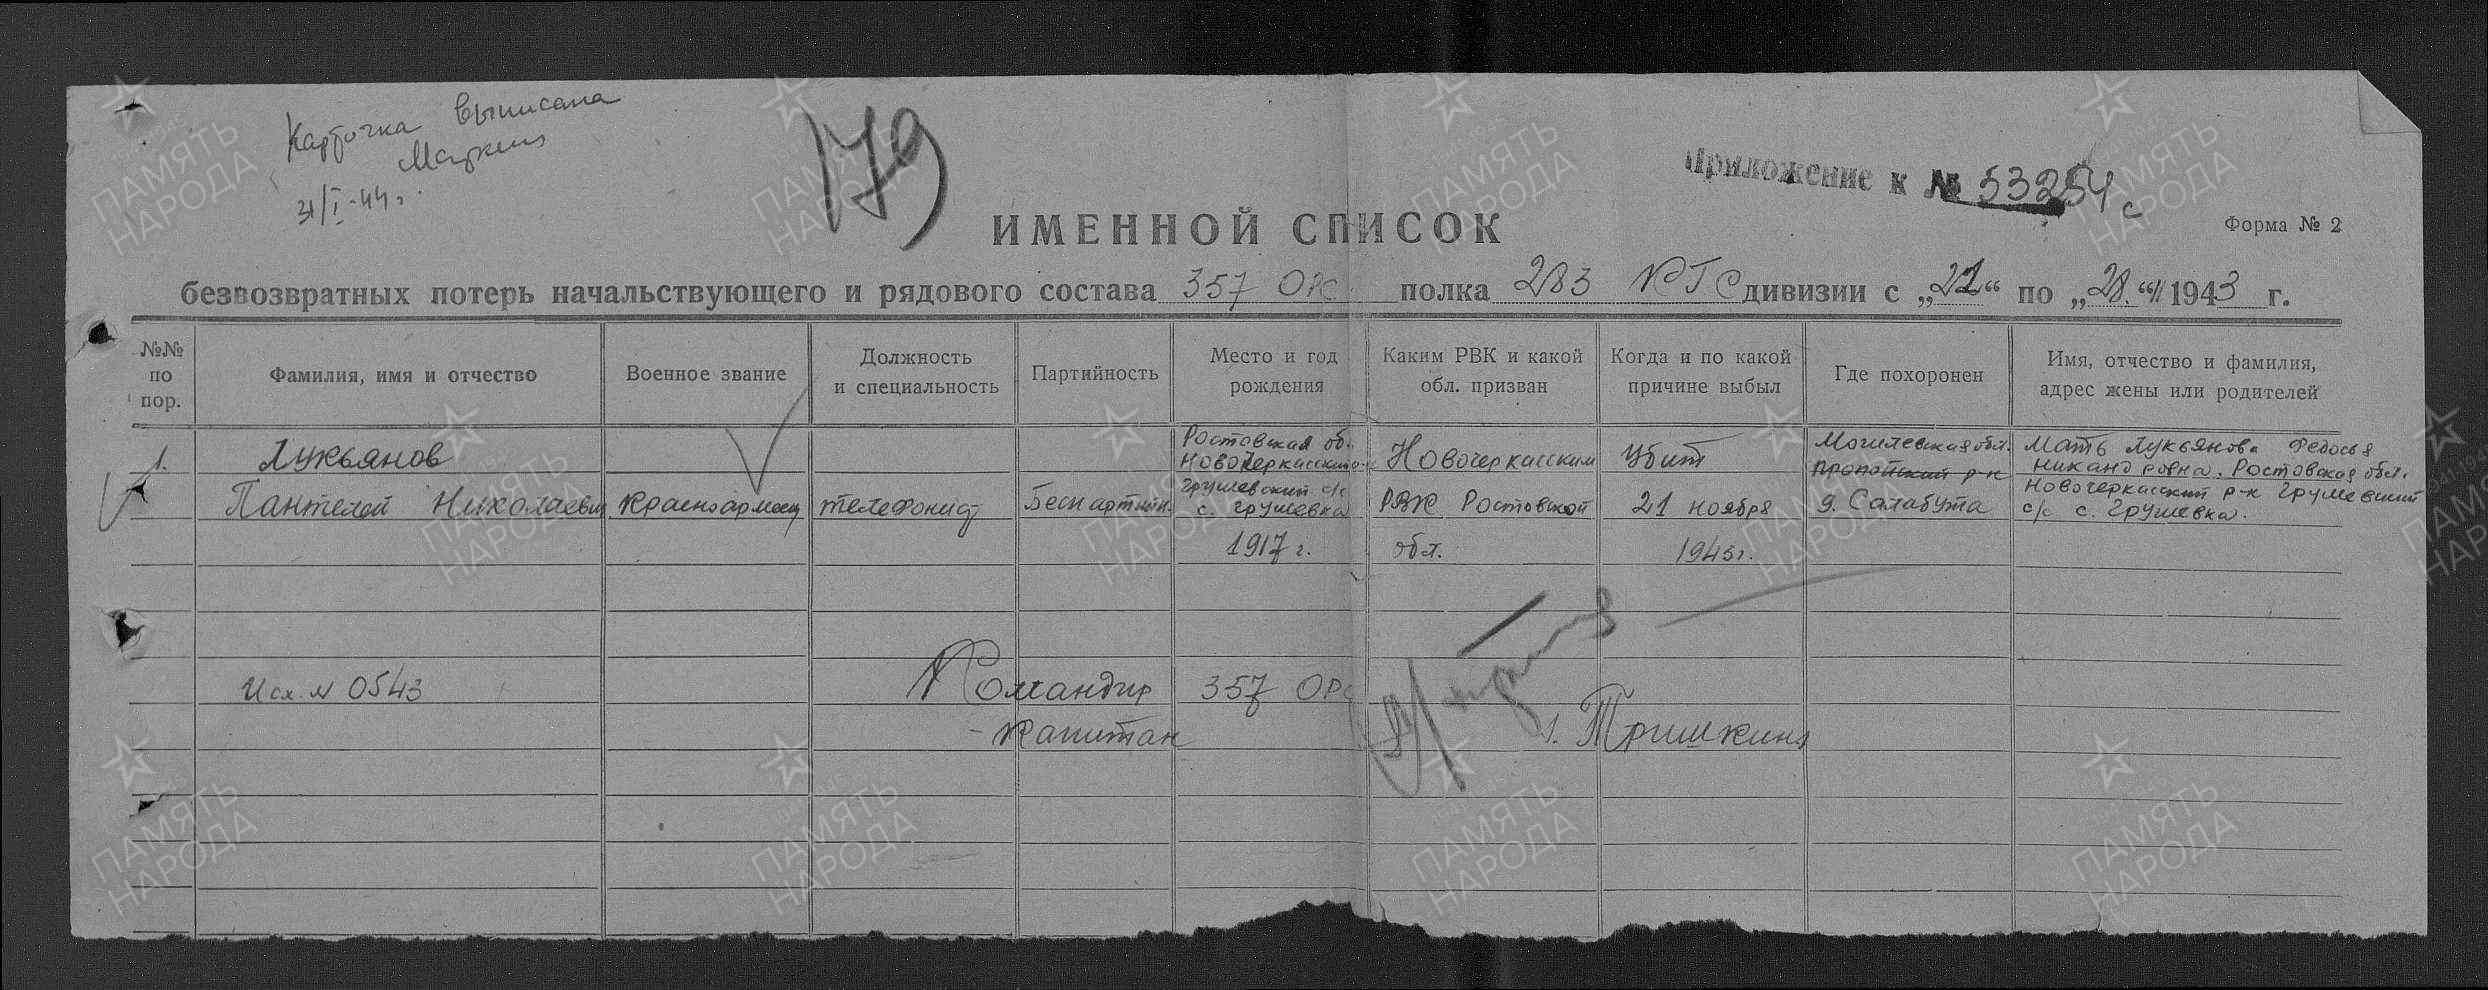 Карточка выписана
31/I-44г.
179
Приложение к № 53254с
ИМЕННОЙ СПИСОК
Форма № 2
безвозвратных потерь начальствующего и рядового состава 357 ОРС полка 283 КГС дивизии с „21“ по „28.“ 11 1943 г.
№№ по пор.
Фамилия, имя и отчество
Военное звание
Должность и специальность
Партийность
Место и год рождения
Каким РВК и какой обл. призван
Когда и по какой причине выбыл
Где похоронен
Имя, отчество и фамилия, адрес жены или родителей
1.
Лукьянов
Пантелей Николаевич
Красноармеец
телефонист
Беспартийн.
Ростовская об.
Новочеркасский
Грушевский с/с
с. Грушевка
1917 г.
Новочеркасским
РВК Ростовской
обл.
Убит
21 ноября
1943г.
Могилевская обл.
Пропойский р-н
д. Салабута
Мать Лукьянова Федосья
Никандровна. Ростовская обл.
Новочеркасский р-н Грушевский
с/с с. Грушевка.
Исх. № 0543
Командир 357 ОРС
Капитан
Тришкин
ПАМЯТЬ НАРОДА